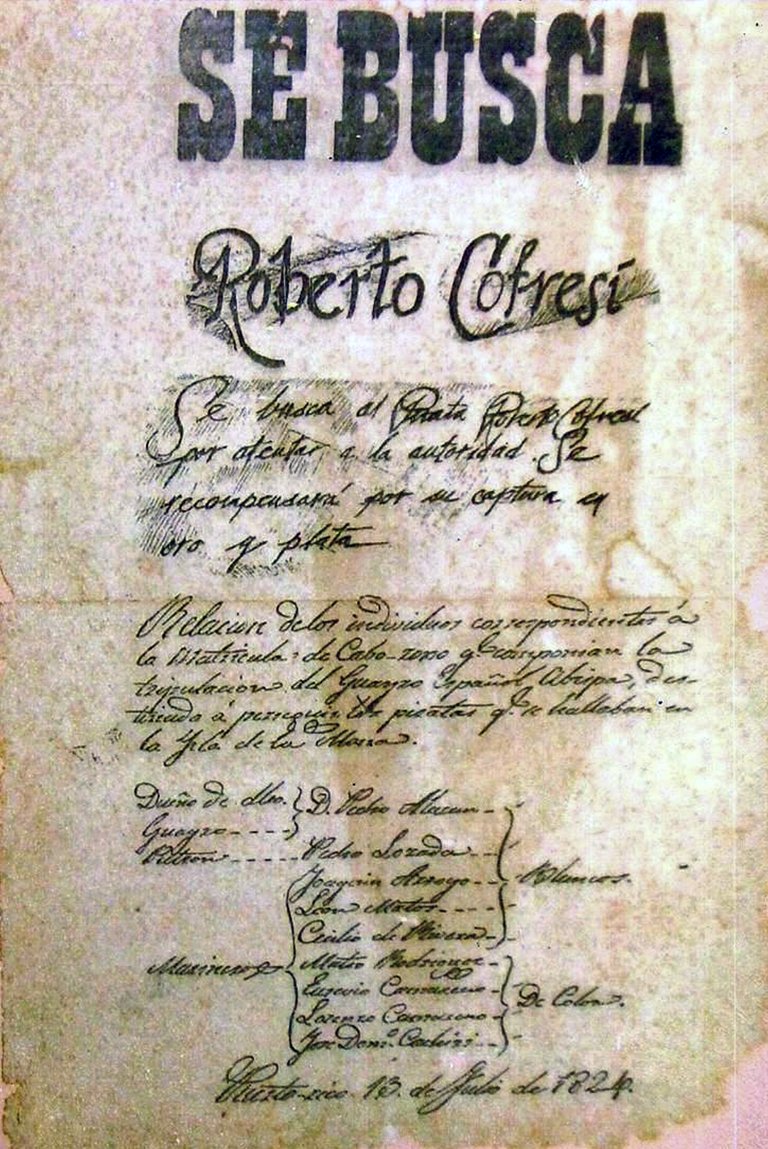 SE BUSCA
Roberto Cofresí
Se busca al Pirata Roberto Cofresí
por atentar a la autoridad. Se
recompensará por su captura en
oro y plata
Relacion de los individuos correspondientes á
la Matricula de Cabo-rojo q.e componian la
tripulacion del Guayro Español Abispa, des-
tinado á perseguir los piratas q.e se hallaban en
la Ysla de la Mona.
Dueño de dho. D. Pedro Alacan
Guayro
Patron Pedro Lozada
Joaquin Arroyo Blancos.
Leon Mator
Cecilio de Rivera
Marineros Mateo Rodriguez
Eusevio Camareno De Color.
Lorenzo Camareno
Jose Dom.o
Puerto-rico 13 de Julio de 1824.